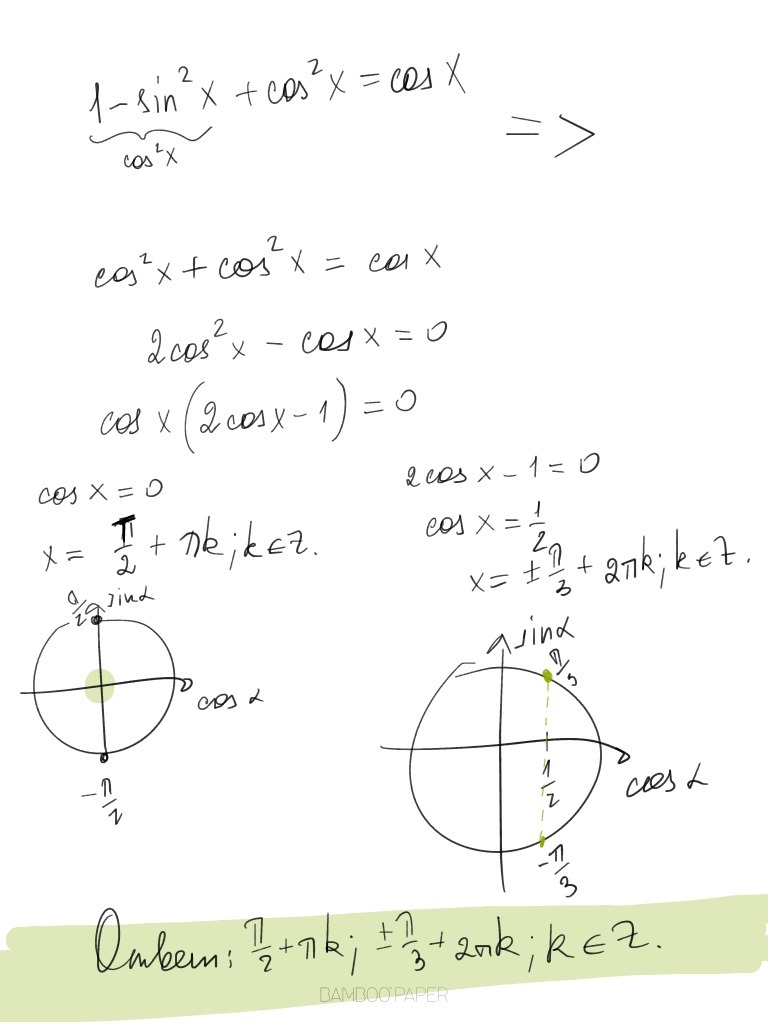 1 - sin²x + cos²x = cos x
cos²x
=>
cos²x + cos²x = cos x
2cos²x - cos x = 0
cos x (2cos x - 1) = 0
cos x = 0
x = π/2 + πk; k ∈ Z.
2cos x - 1 = 0
cos x = 1/2
x = ± π/3 + 2πk; k ∈ Z.
π/2 sin α
cos α
-π/2
sin α
π/3
1/2
cos α
-π/3
Ответ: π/2 + πk; ± π/3 + 2πk; k ∈ Z.
BAMBOO PAPER